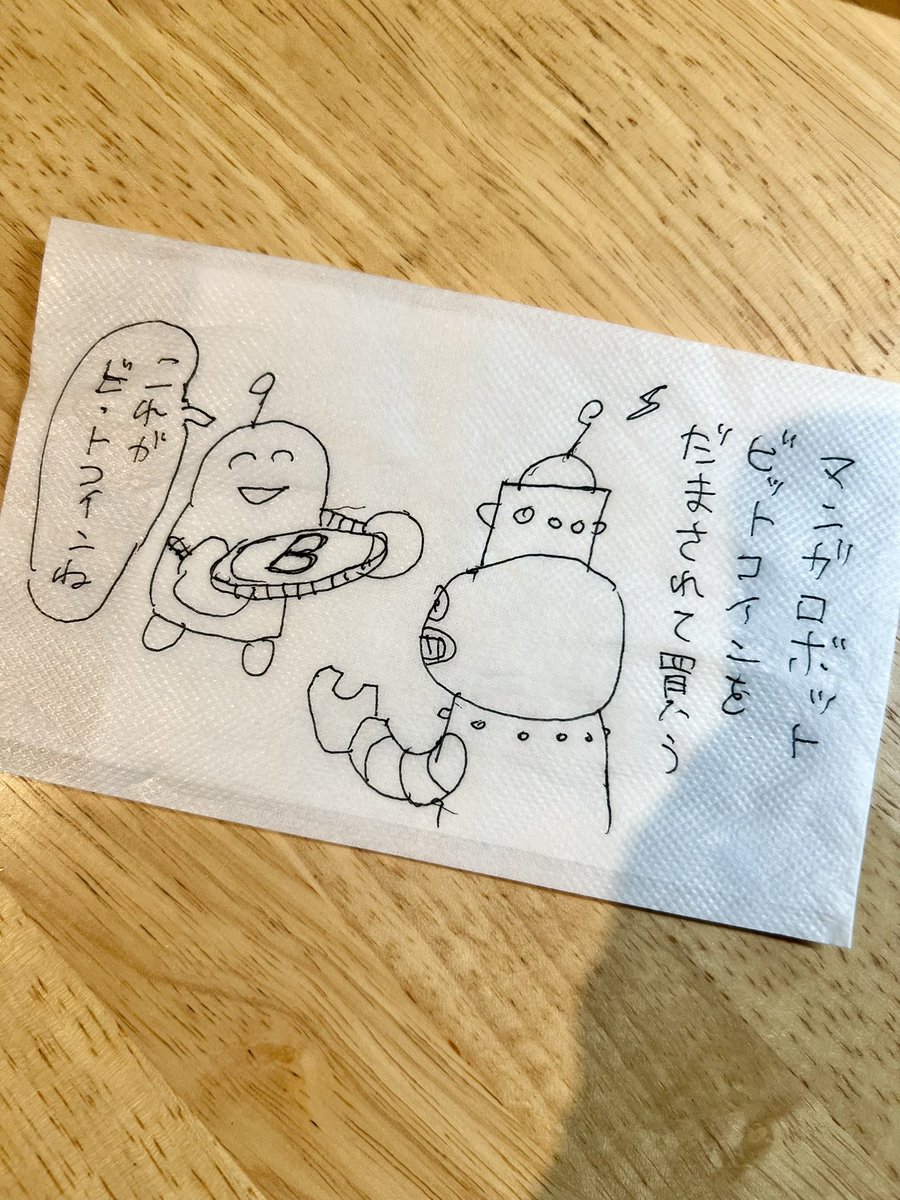 マンテロボット
ビットコインを
だまされて買う
これが
ビットコインね
B